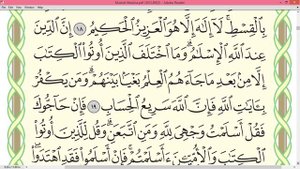 بِٱلْقِسْطِ لَآ إِلَٰهَ إِلَّا هُوَ ٱلْعَزِيزُ ٱلْحَكِيمُ ١٨ إِنَّ ٱلدِّينَ
عِندَ ٱللَّهِ ٱلْإِسْلَٰمُ وَمَا ٱخْتَلَفَ ٱلَّذِينَ أُوتُوا۟ ٱلْكِتَٰبَ
إِلَّا مِنۢ بَعْدِ مَا جَآءَهُمُ ٱلْعِلْمُ بَغْيًۢا بَيْنَهُمْ وَمَن يَكْفُرْ
بِـَٔايَٰتِ ٱللَّهِ فَإِنَّ ٱللَّهَ سَرِيعُ ٱلْحِسَابِ ١٩ فَإِنْ حَآجُّوكَ
فَقُلْ أَسْلَمْتُ وَجْهِىَ لِلَّهِ وَمَنِ ٱتَّبَعَنِ وَقُل لِّلَّذِينَ أُوتُوا۟
ٱلْكِتَٰبَ وَٱلْأُمِّيِّۦنَ ءَأَسْلَمْتُمْ فَإِنْ أَسْلَمُوا۟ فَقَدِ ٱهْتَدَوا۟